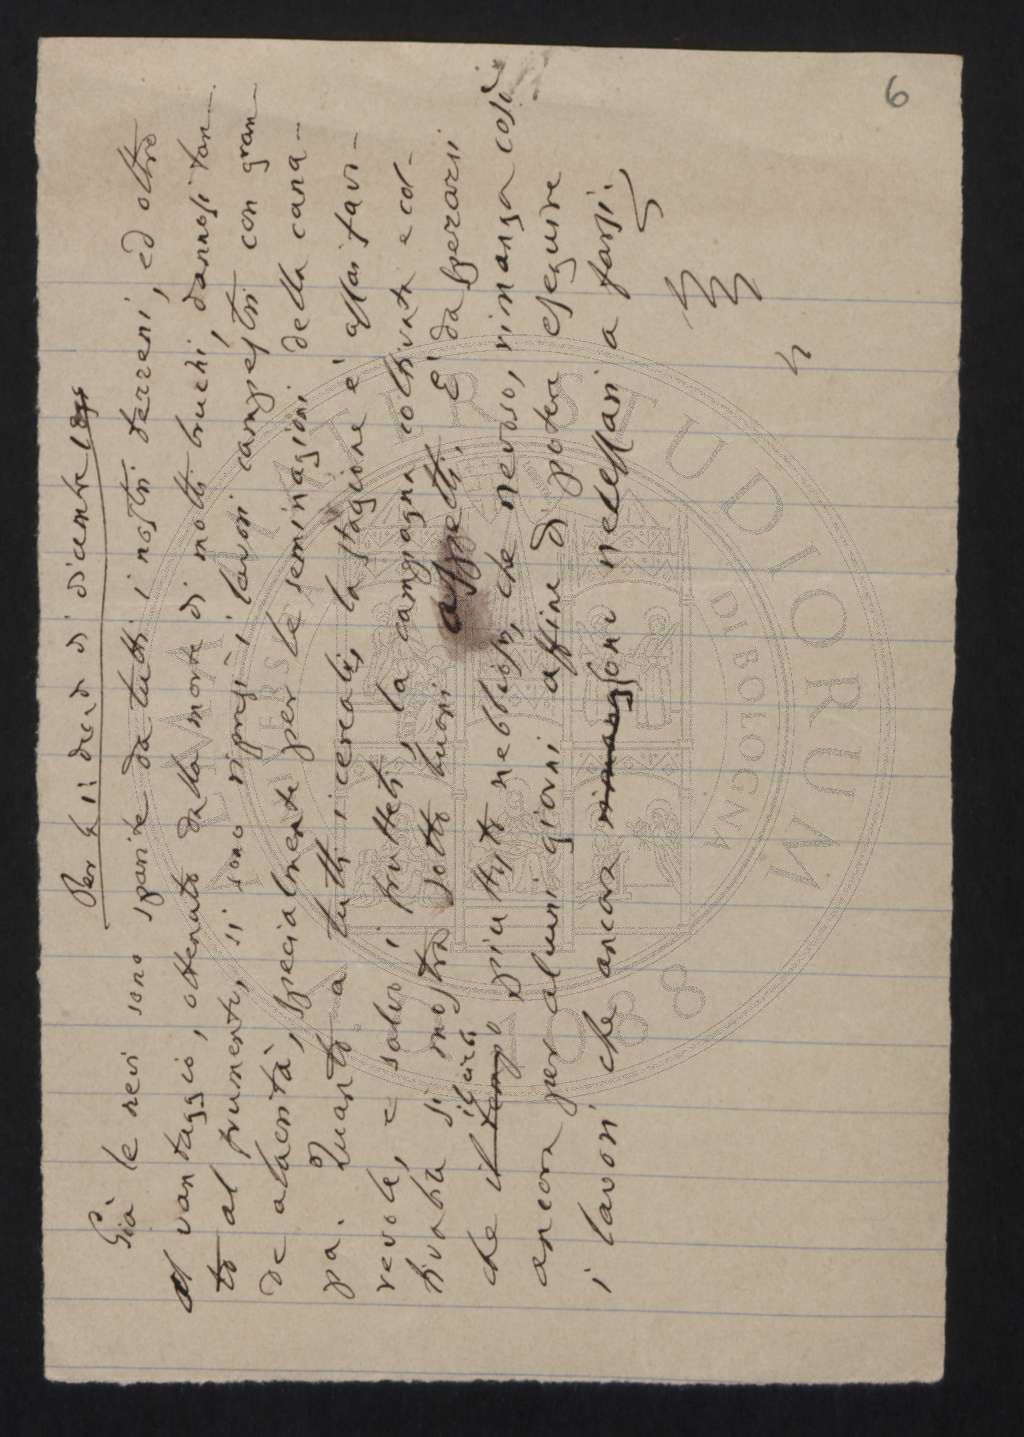 6
Per la 1ª deca di dicembre
Già le nevi sono sparite da tutti i nostri terreni, ed oltre
al vantaggio, ottenuto dalla morte di molti bruchi, dannosi tan-
to al frumento, si sono ripresi i lavori campestri con gran-
de alacrità, specialmente per le seminagioni della cana-
pa. Quanto a tutti i cereali, la stagione è assai favo-
revole, e salvo i frutteti, la campagna coltivata e col-
tivabile si mostra sotto buoni aspetti. È da sperarsi
che il tempo il cielo piuttosto nebbioso, che nevoso, rimanga così
ancora per alcuni giorni affine di poter eseguire
i lavori che ancora rimangono necessari a farsi.
ALMA MATER STUDIORUM
A.D. 1088
UNIVERSITÀ DI BOLOGNA